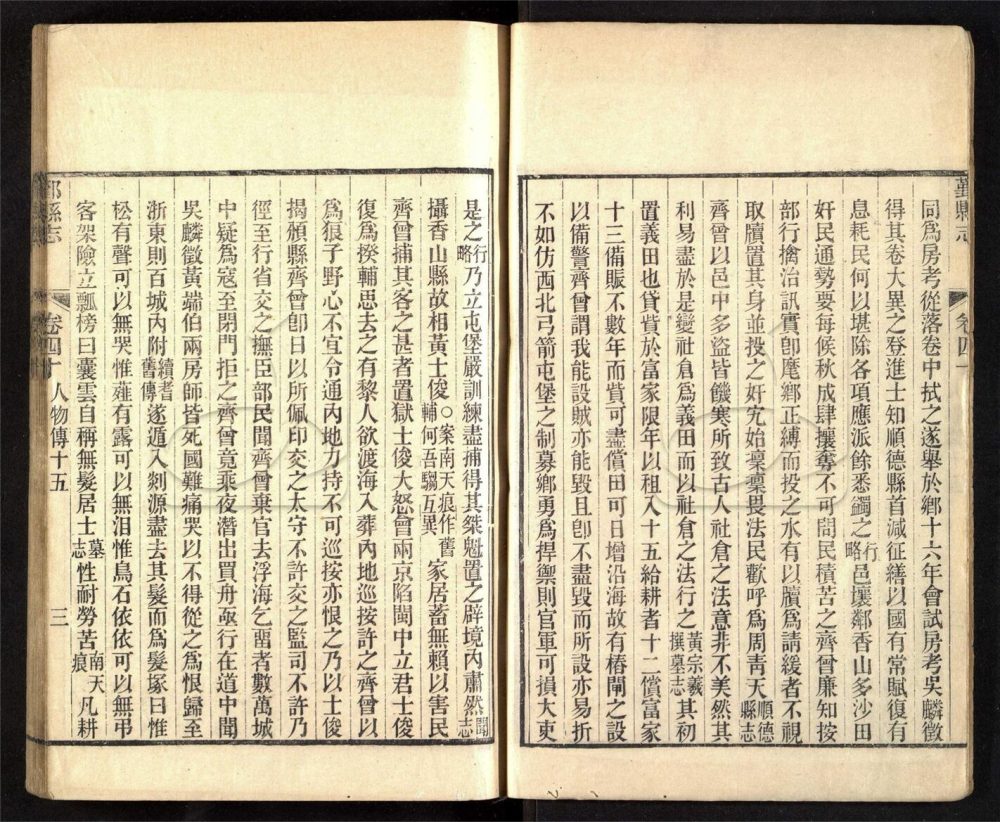 同爲房考從落卷中拭之遂舉於鄉十六年會試房考吳麟徵
得其卷大異之登進士知順德縣首減征繕以國有常賦復有
息耗民何以堪除各項應派餘悉蠲之行略邑壤鄰香山多沙田
奸民通勢要每候秋成肆攘奪不可問民積苦之齊曾廉知按
部行擒治訊實卽麾鄉正縛而投之水有以牘爲請緩者不視
取牘置其身並投之奸宄始稟稟畏法民歡呼爲周靑天順德縣志
齊曾以邑中多盜皆饑寒所致古人社倉之法意非不美然其
利易盡於是變社倉爲義田而以社倉之法行之黃宗羲撰墓志其初
置義田也貸貲於富家限年以租入十五給耕者十二償富家
十三備賑不數年而貲可盡償田可日增沿海故有樁閘之設
以備警齊曾謂我能設賊亦能毀且卽不盡毀而所設亦易折
不如仿西北弓箭屯堡之制募鄉勇爲捍禦則官軍可損大吏
是之行略乃立屯堡嚴訓練盡捕得其桀魁置之辟境內肅然聞志
攝香山縣故相黃士俊○案南天痕作舊輔何吾騶互異家居蓄無賴以害民
齊曾捕其客之甚者置獄士俊大怒會兩京陷閩中立君士俊
復爲揆輔思去之有黎人欲渡海入葬內地巡按許之齊曾以
爲狼子野心不宜令通內地力持不可巡按亦恨之乃以士俊
揭頒縣齊曾卽日以所佩印交之太守不許交之監司不許乃
徑至行省交之撫臣部民聞齊曾棄官去浮海乞畱者數萬城
中疑爲寇至閉門拒之齊曾竟乘夜潛出買舟亟行在道中聞
吳麟徵黃端伯兩房師皆死國難痛哭以不得從之爲恨歸至
浙東則百城內附續耆舊傳遂遁入剡源盡去其髮而爲髮塚曰惟
松有聲可以無哭惟薤有露可以無泪惟鳥石依依可以無弔
客架險立瓢榜曰囊雲自稱無髮居士墓志性耐勞苦南天痕凡耕
鄞縣志
卷四十
人物傳十五
三